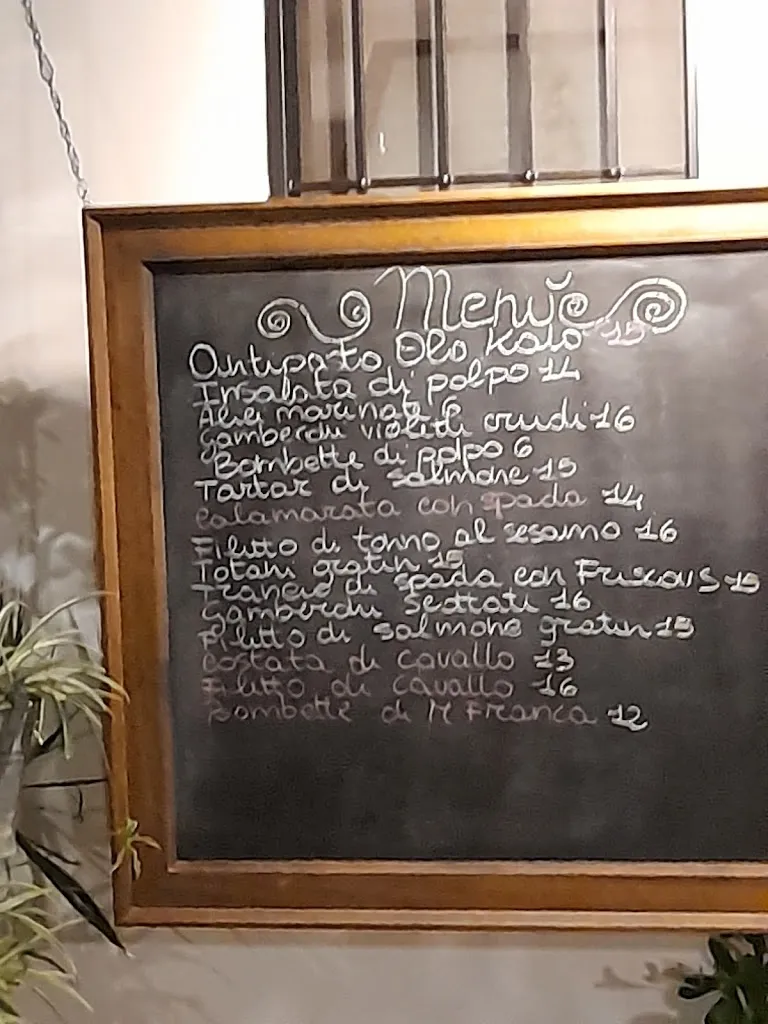 Menù
Antipasto Olo Kalo 15
Insalata di polpo 14
Alici marinate 6
Gamberchi violetti crudi 16
Bombette di polpo 6
Tartar di salmone 15
Calamarata con spada 14
Filetto di tonno al sesamo 16
Totani gratin 15
Trancio di spada con Friscous 15
Gamberchi Scottati 16
Filetto di salmone gratin 15
Costata di cavallo 13
Filetto di cavallo 16
Bombette di M Franca 12